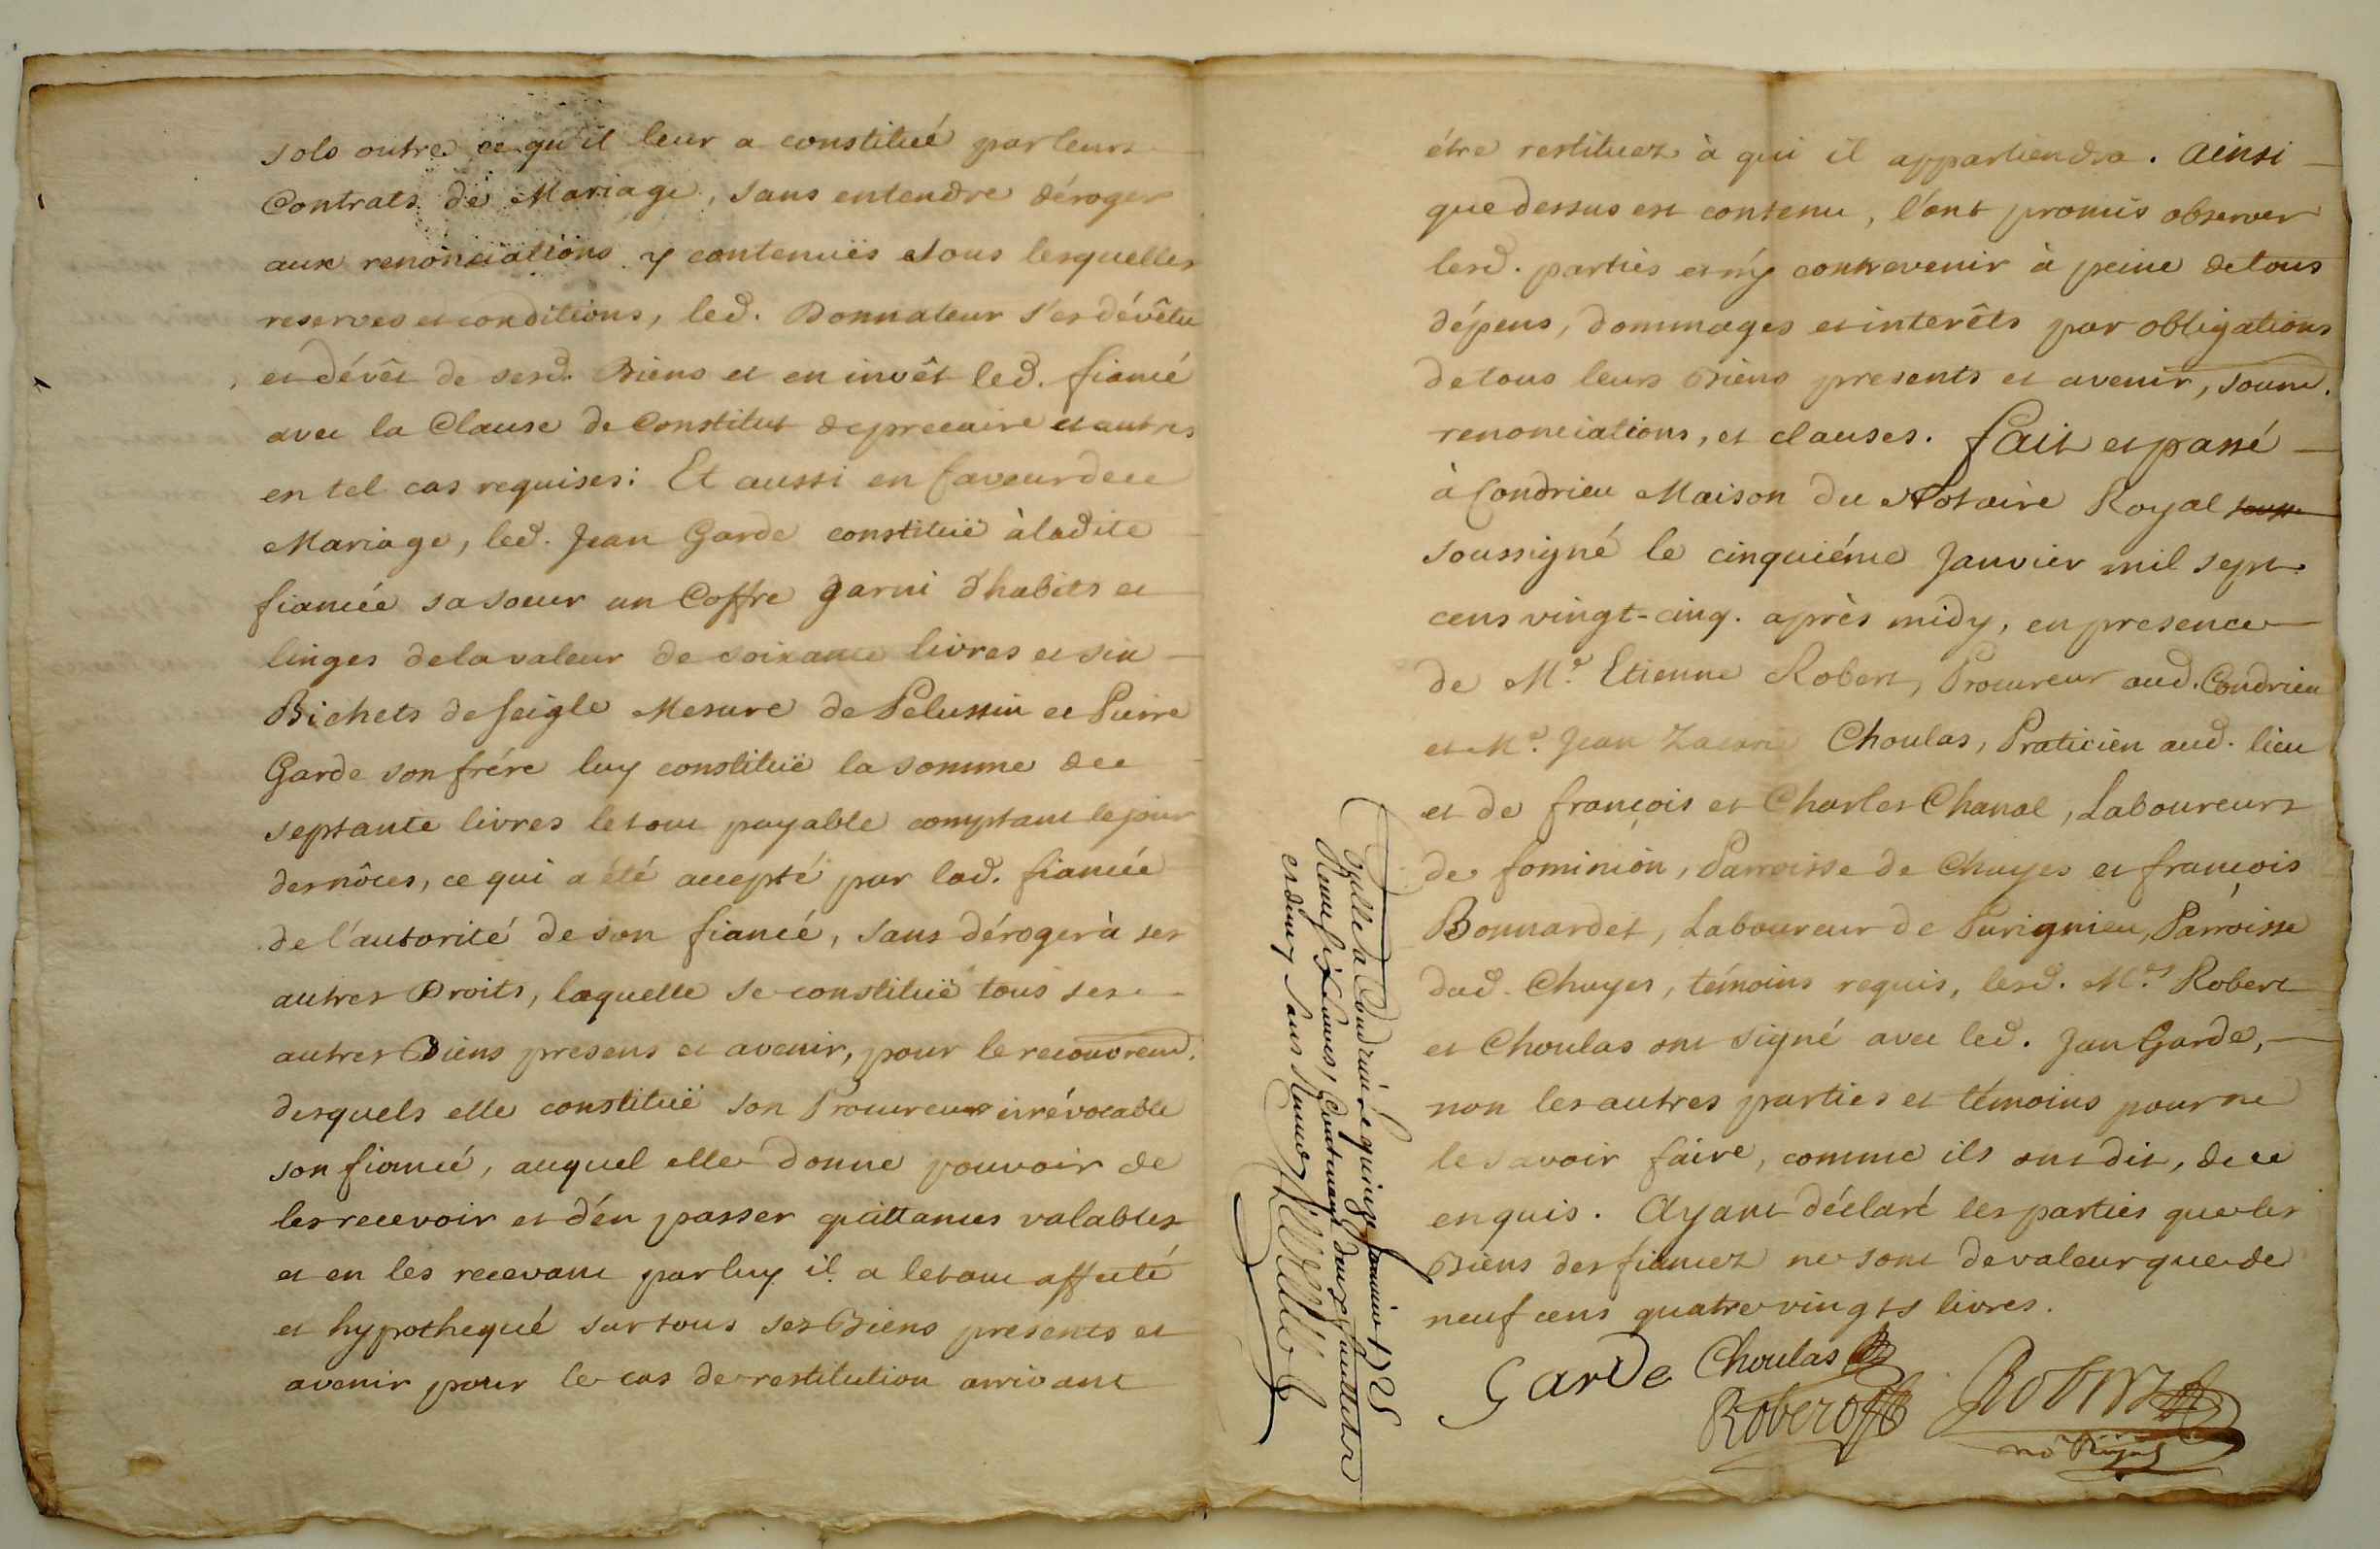 sols outre ce qu'il leur a constitué par leurs
Contrats de Mariage, sans entendre déroger
aux renonciations y contenuës sous lesquelles
reserves et conditions, led. Donnateur s'es dévêtu
et dévêt de sesd. Biens et en invêt led. fiancé
avec la Clause de Constitut de precaire et autres
en tel cas requises: Et aussi en faveur de ce
Mariage, led. Jean Garde constituë à ladite
fiancée sa soeur un Coffre garni d'habits et
linges de la valeur de soixante livres et six
Bichets de seigle Mesure de Pelussin et Pierre
Garde son frére luy constituë la somme de
septante livres le tout payable comptant le jour
des nôces, ce qui a été accepté par lad. fiancée
de l'autorité de son fiancé, sans déroger à ses
autres Droits, laquelle se constituë tous ses
autres Biens presens et avenir, pour le recouvrem.
desquels elle constituë son Procureur irrévocable
son fiancé, auquel elle donne pouvoir de
les recevoir et d'en passer quittances valables
et en les recevant par luy il a le tout affecté
et hypothequé sur tous ses Biens presents et
avenir pour le cas de restitution arrivant
étre restituez à qui il appartiendra. Ainsi
que dessus est contenu, l'ont promis observer
lesd. parties et n'y contrevenir à peine de tous
dépens, dommages et interêts par obligations
de tous leurs Biens presents et avenir, soum.
renonciations, et clauses. fait et passé
à Condrieu Maison du Notaire Royal
soussigné le cinquiéme Janvier mil sept
cens vingt-cinq. après midy, en presence
de Me. Etienne Robert, Procureur aud. Condrieu
et Me. Jean Zacarie Choulas, Praticien aud. lieu
et de françois et Charles Chanal, Laboureurs
de fominion, Parroisse de Chuyes et françois
Bonnardet, Laboureur de Purignieu, Parroisse
dud. Chuyes, témoins requis, lesd. Mes. Robert
et Choulas ont signé avec led. Jean Garde,
non les autres parties et témoins pour ne
le savoir faire, comme ils ont dit, de ce
enquis. Ayant déclaré les parties que les
Biens des fiancez ne sont de valeur que de
neuf cens quatre vingts livres.
Garde Choulas
Robert Robert
no Royal
a Condrieu le quinze Janvier 1725
Reçu six Livres,